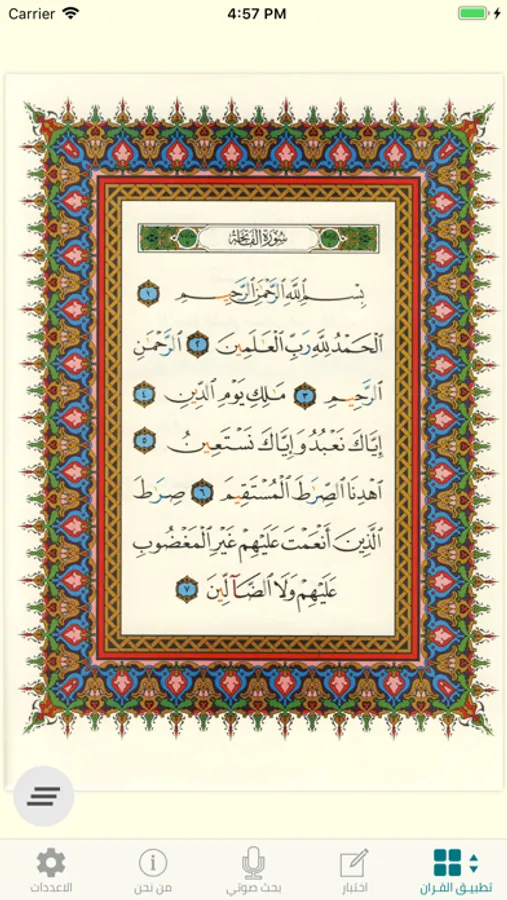 Carrier 4:57 PM
سُورَةُ الفَاتِحَةِ
بِسْمِ ٱللَّهِ ٱلرَّحْمَٰنِ ٱلرَّحِيمِ ١
ٱلْحَمْدُ لِلَّهِ رَبِّ ٱلْعَٰلَمِينَ ٢ ٱلرَّحْمَٰنِ
ٱلرَّحِيمِ ٣ مَٰلِكِ يَوْمِ ٱلدِّينِ ٤
إِيَّاكَ نَعْبُدُ وَإِيَّاكَ نَسْتَعِينُ ٥
ٱهْدِنَا ٱلصِّرَٰطَ ٱلْمُسْتَقِيمَ ٦ صِرَٰطَ
ٱلَّذِينَ أَنْعَمْتَ عَلَيْهِمْ غَيْرِ ٱلْمَغْضُوبِ
عَلَيْهِمْ وَلَا ٱلضَّآلِّينَ ٧
تطبيق القران اختبار بحث صوتي من نحن الاعددات